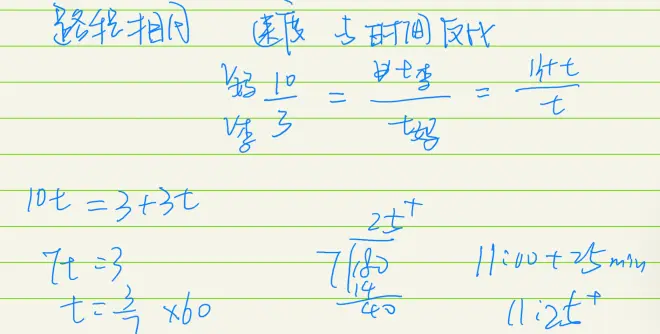 路程相同 速度与时间反比
V妈/V李 10/3 = t李/t妈 = 1h+t/t
10t = 3+3t
7t = 3
t = 3/7 ×60
25+
7√180
14
40
11:00 + 25min
11:25+